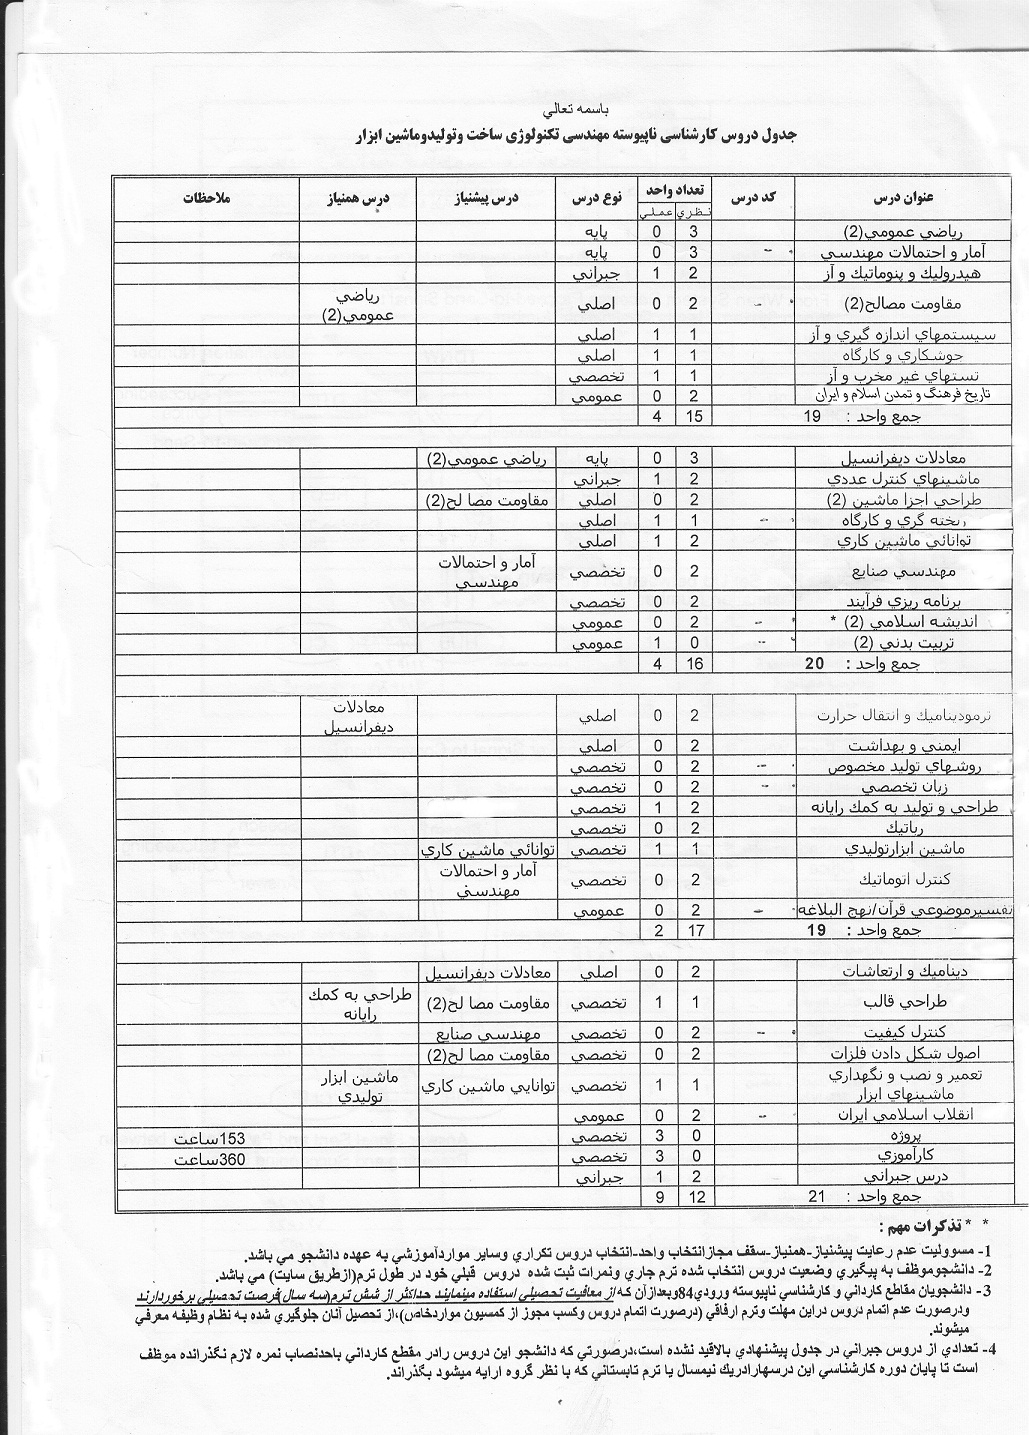 باسمه تعالي
جدول دروس كارشناسى ناپيوسته مهندسى تكنولوژى ساخت وتوليدوماشين ابزار
عنوان درس كد درس تعداد واحد نوع درس درس پيشنياز درس همنياز ملاحظات
نظري عملي
رياضي عمومي(2) 3 0 پايه
آمار و احتمالات مهندسي -- 3 0 پايه
هيدروليك و پنوماتيك و آز 2 1 جبراني
مقاومت مصالح(2) -- 2 0 اصلي رياضي عمومي(2)
سيستمهاي اندازه گيري و آز 1 1 اصلي
جوشكاري و كارگاه 1 1 اصلي
تستهاي غير مخرب و آز 1 1 تخصصي
تاريخ فرهنگ و تمدن اسلام و ايران 2 0 عمومي
جمع واحد : 19 15 4
معادلات ديفرانسيل 3 0 پايه رياضي عمومي(2)
ماشينهاي كنترل عددي 2 1 جبراني
طراحي اجزا ماشين (2) 2 0 اصلي مقاومت مصا لح(2)
ريخته گري و كارگاه -- 1 1 اصلي
توانائي ماشين كاري 2 1 اصلي
مهندسي صنايع 2 0 تخصصي آمار و احتمالات مهندسي
برنامه ريزي فرآيند 2 0 تخصصي
انديشه اسلامي (2) * -- 2 0 عمومي
تربيت بدني (2) -- 0 1 عمومي
جمع واحد : 20 16 4
ترموديناميك و انتقال حرارت 2 0 اصلي معادلات ديفرانسيل
ايمني و بهداشت 2 0 اصلي
روشهاي توليد مخصوص -- 2 0 تخصصي
زبان تخصصي -- 2 0 تخصصي
طراحي و توليد به كمك رايانه 2 1 تخصصي
رباتيك 2 0 تخصصي
ماشين ابزارتوليدي 1 1 تخصصي توانائي ماشين كاري
كنترل اتوماتيك 2 0 تخصصي آمار و احتمالات مهندسي
تفسيرموضوعي قرآن/نهج البلاغه -- 2 0 عمومي
جمع واحد : 19 17 2
ديناميك و ارتعاشات 2 0 اصلي معادلات ديفرانسيل
طراحي قالب 1 1 تخصصي مقاومت مصا لح(2) طراحي به كمك رايانه
كنترل كيفيت -- 2 0 تخصصي مهندسي صنايع
اصول شكل دادن فلزات 2 0 تخصصي مقاومت مصا لح(2)
تعمير و نصب و نگهداري ماشينهاي ابزار 1 1 تخصصي توانايي ماشين كاري ماشين ابزار توليدي
انقلاب اسلامي ايران -- 2 0 عمومي
پروژه 0 3 تخصصي 153ساعت
كارآموزي 0 3 تخصصي 360ساعت
درس جبراني 2 1 جبراني
جمع واحد : 21 12 9
* * تذكرات مهم :
1- مسووليت عدم رعايت پيشنياز-همنياز-سقف مجازانتخاب واحد-انتخاب دروس تكراري وساير مواردآموزشي به عهده دانشجو مي باشد.
2- دانشجوموظف به پيگيري وضعيت دروس انتخاب شده ترم جاري ونمرات ثبت شده دروس قبلي خود در طول ترم(ازطريق سايت) مي باشد.
3 - دانشجويان مقاطع كارداني و كارشناسي ناپيوسته ورودي84وبعدازآن كه از معافيت تحصيلي استفاده مينمايند حداكثر از شش ترم(سه سال)فرصت تحصيلي برخوردارند
ودرصورت عدم اتمام دروس دراين مهلت وترم ارفاقي (درصورت اتمام دروس وكسب مجوز از كمسيون مواردخاص)،از تحصيل آنان جلوگيري شده به نظام وظيفه معرفي
ميشوند.
4- تعدادي از دروس جبراني در جدول پيشنهادي بالاقيد نشده است،درصورتي كه دانشجو اين دروس رادر مقطع كارداني باحدنصاب نمره لازم نگذرانده موظف
است تا پايان دوره كارشناسي اين درسهارادريك نيمسال يا ترم تابستاني كه با نظر گروه ارايه ميشود بگذراند.